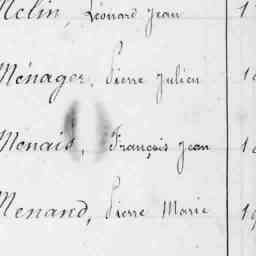 Melin, Léonard Jean 1
Ménager, Pierre Julien 1
Menais, François Jean 1
Menand, Pierre Marie 19